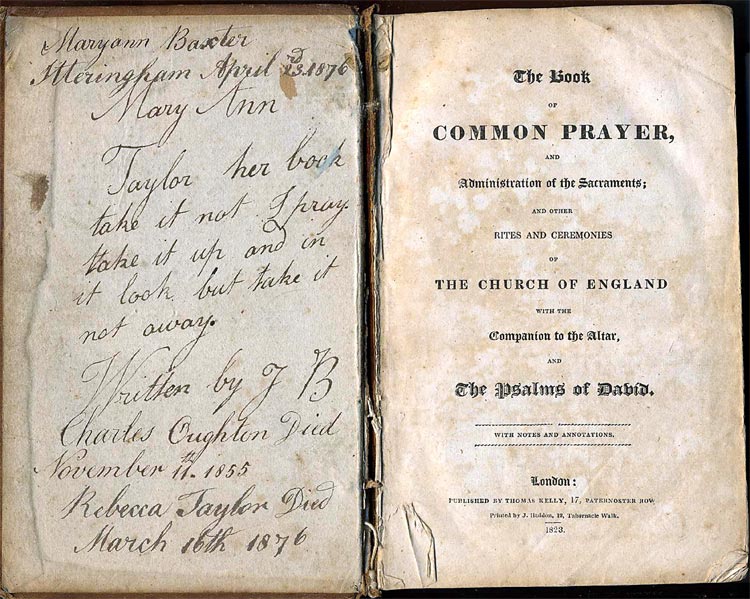 Maryann Baxter
Itteringham April 23rd 1876
Mary Ann
Taylor her book
take it not I pray
take it up and in
it look but take it
not away.
Written by J B
Charles Oughton Died
November 11th. 1855
Rebecca Taylor Died
March 16th 1876
The Book
OF
COMMON PRAYER,
AND
Administration of the Sacraments;
AND OTHER
RITES AND CEREMONIES
OF
THE CHURCH OF ENGLAND
WITH THE
Companion to the Altar,
AND
The Psalms of David.
WITH NOTES AND ANNOTATIONS.
London:
PUBLISHED BY THOMAS KELLY, 17, PATERNOSTER ROW
Printed by J. Haddon, 12, Tabernacle Walk.
1823.